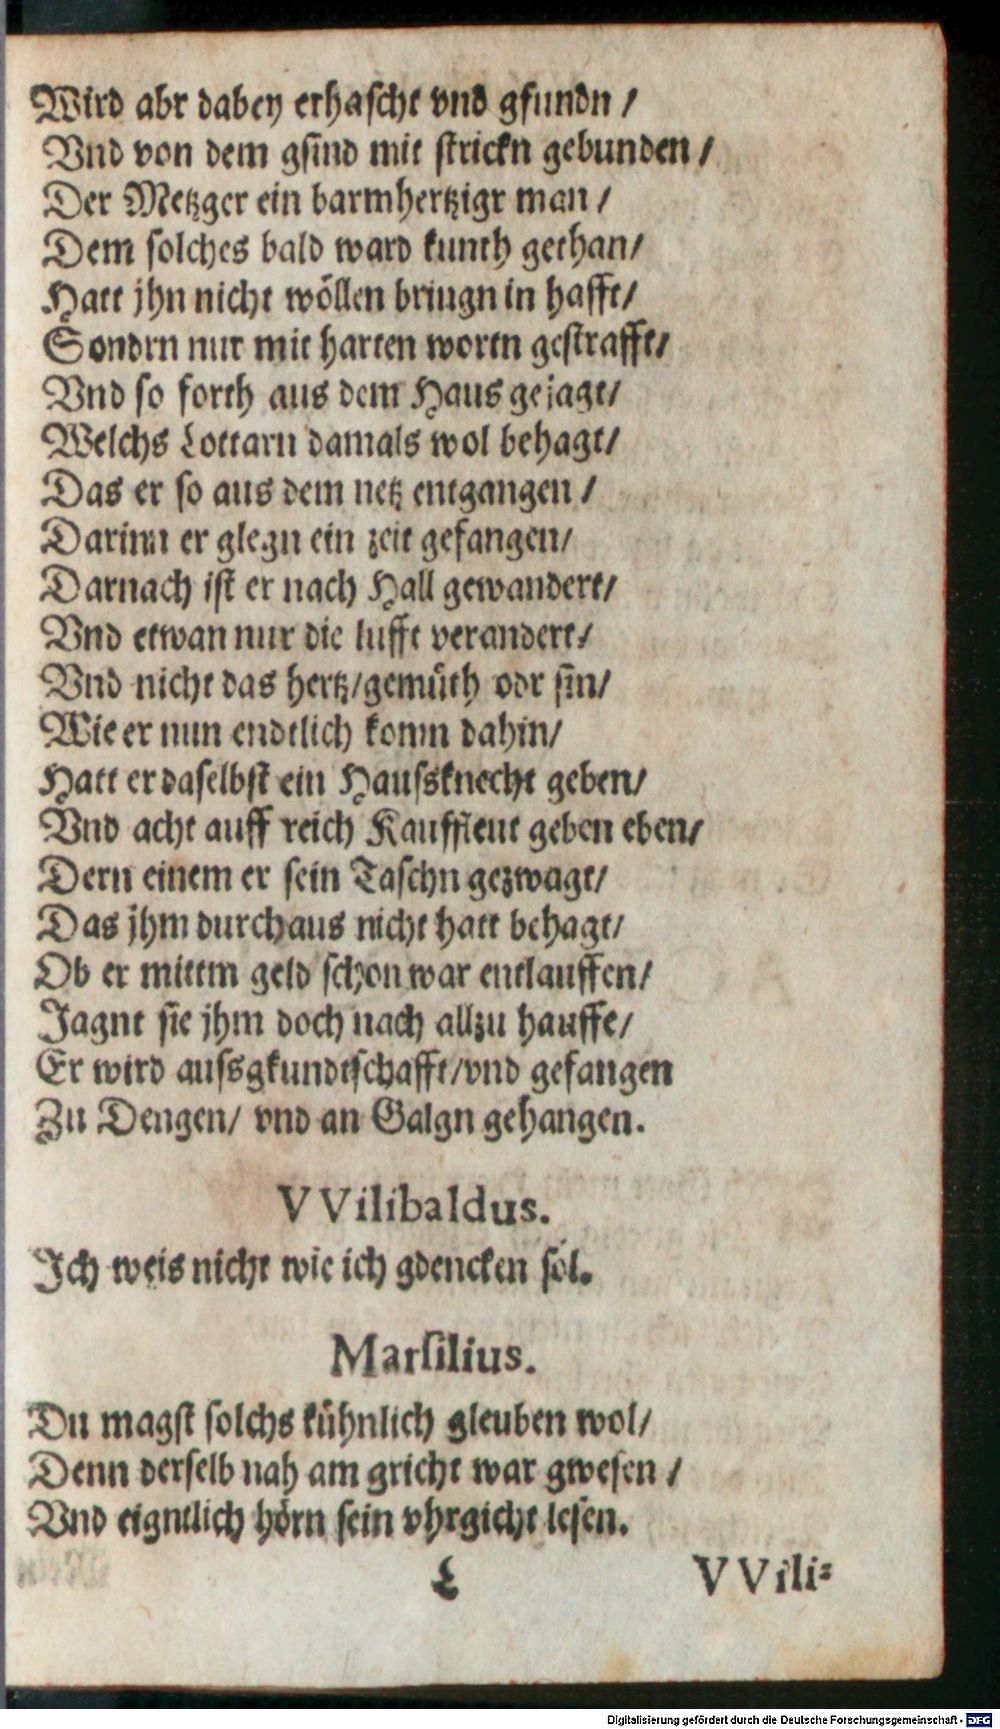 Wird abr dabey erhascht vnd gfundn /
Vnd von dem gsind mit strickn gebunden /
Der Metzger ein barmhertzigr man /
Dem solches bald ward kunth gethan/
Hatt jhn nicht wöllen bringn in hafft/
Sondrn nur mit harten wortn gestrafft/
Vnd so forth aus dem Haus gejagt/
Welchs Lottarn damals wol behagt/
Das er so aus dem netz entgangen /
Darinn er glegn ein zeit gefangen/
Darnach ist er nach Hall gewandert/
Vnd etwan nur die lufft verandert/
Vnd nicht das hertz/gemüth odr sin/
Wie er nun endtlich komn dahin/
Hatt er daselbst ein Haussknecht geben/
Vnd acht auff reich Kauffleut geben eben/
Dern einem er sein Taschn gezwagt/
Das jhm durchaus nicht hatt behagt/
Ob er mittm geld schon war entlauffen/
Jagnt sie jhm doch nach allzu hauffe/
Er wird aussgkundtschafft/vnd gefangen
Zu Dengen/ vnd an Galgn gehangen.
VVilibaldus.
Ich weis nicht wie ich gdencken sol.
Marsilius.
Du magst solchs kühnlich gleuben wol/
Denn derselb nah am gricht war gwesen /
Vnd eigntlich hörn sein vhrgicht lesen.
VVili-
Digitalisierung gefördert durch die Deutsche Forschungsgemeinschaft - DFG